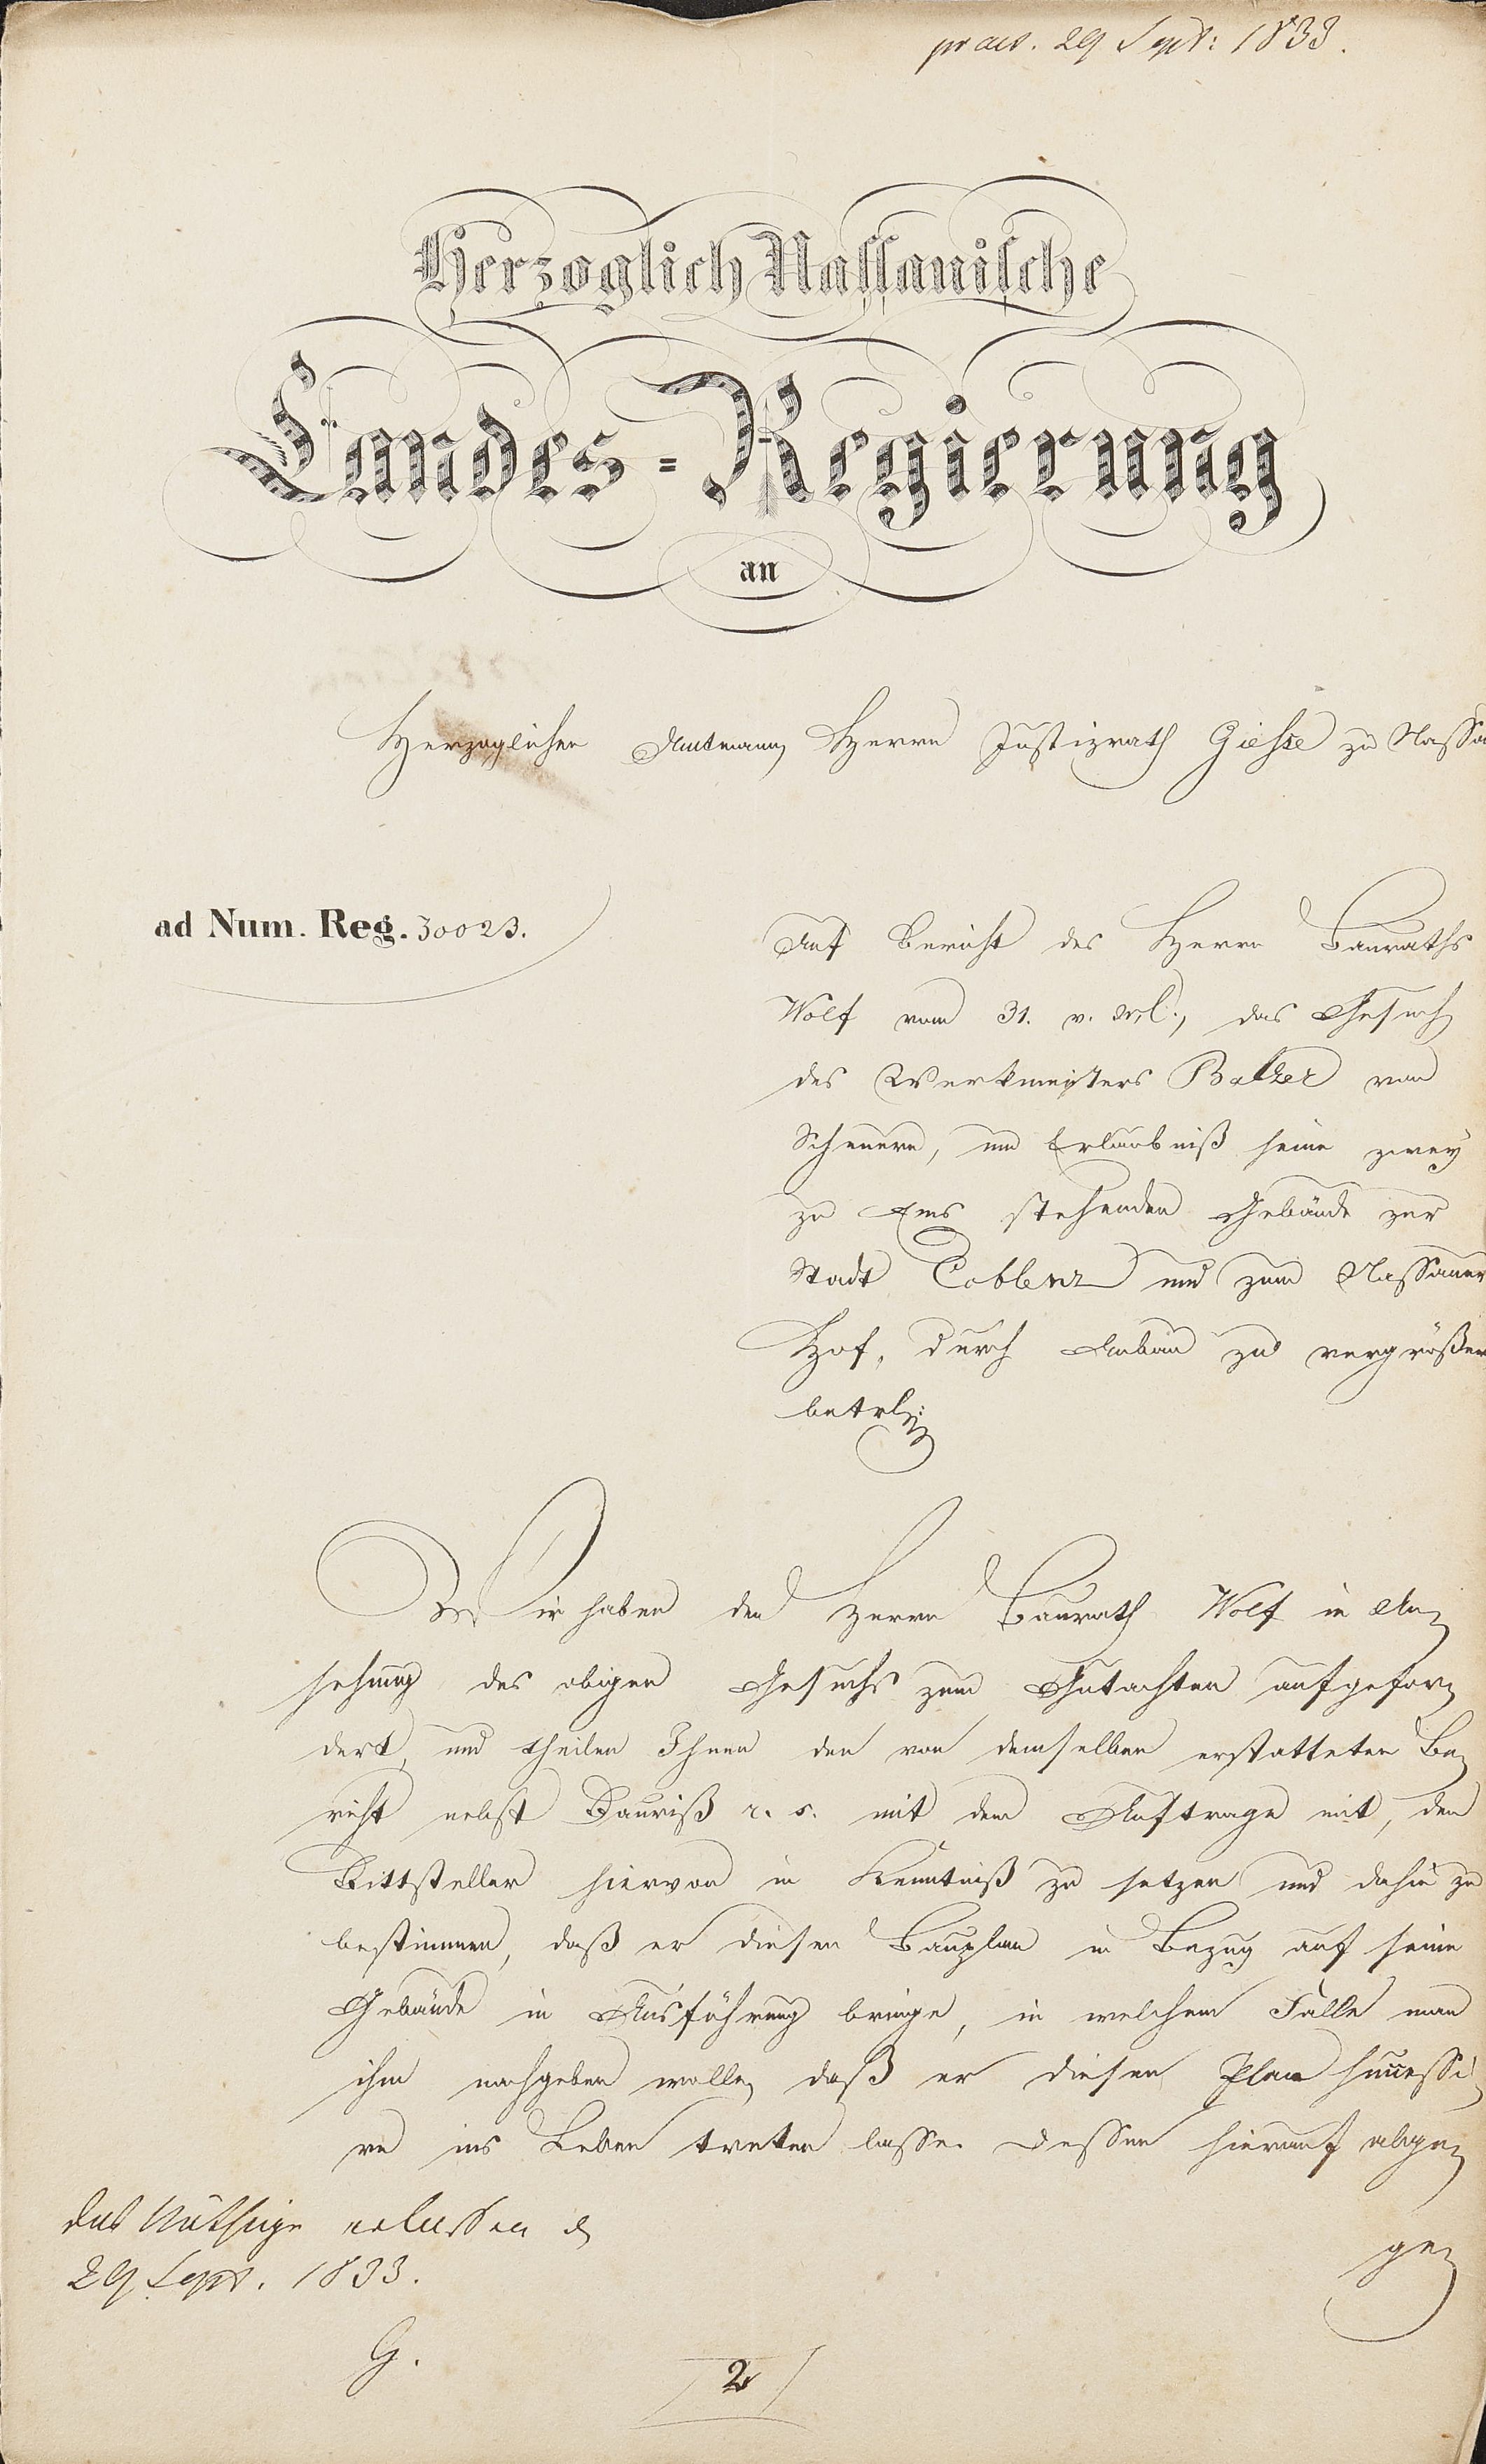 praes. 29 Sept: 1833.
Herzoglich Nassauische
Landes-Regierung
an
Herzoglichen Amtmann Herrn Justizrath Giesse zu Nassa
ad Num. Reg. 30023.
Auf Bericht des Herrn Bauraths
Wolf vom 31. v. M., das Gesuch
des Werkmeisters Balzer von
Scheuern, um Erlaubniß seine zwey
zu Ems stehenden Gebäude zur
Stadt Coblenz und zum Nassauer
Hof, durch Anbau zu vergrößern
betrl:
Wir haben den Herrn Baurath Wolf in An-
sehung des obigen Gesuchs zum Gutachten aufgefor-
dert, und theilen Ihnen den von demselben erstatteten Be-
richt nebst Bauriß r. s. mit dem Auftrage mit, den
Bittsteller hiervon in Kenntniß zu setzen und dahin zu
bestimmen, daß er diesen Bauplan in Bezug auf seine
Gebäude in Ausführung bringe, in welchem Falle man
ihm nachgeben wolle, daß er diesen Plan successi-
ve ins Leben treten lasse. Dessen hierauf abge-
ge-
das Nöthige erlassen d
29 Sept. 1833.
G.
2